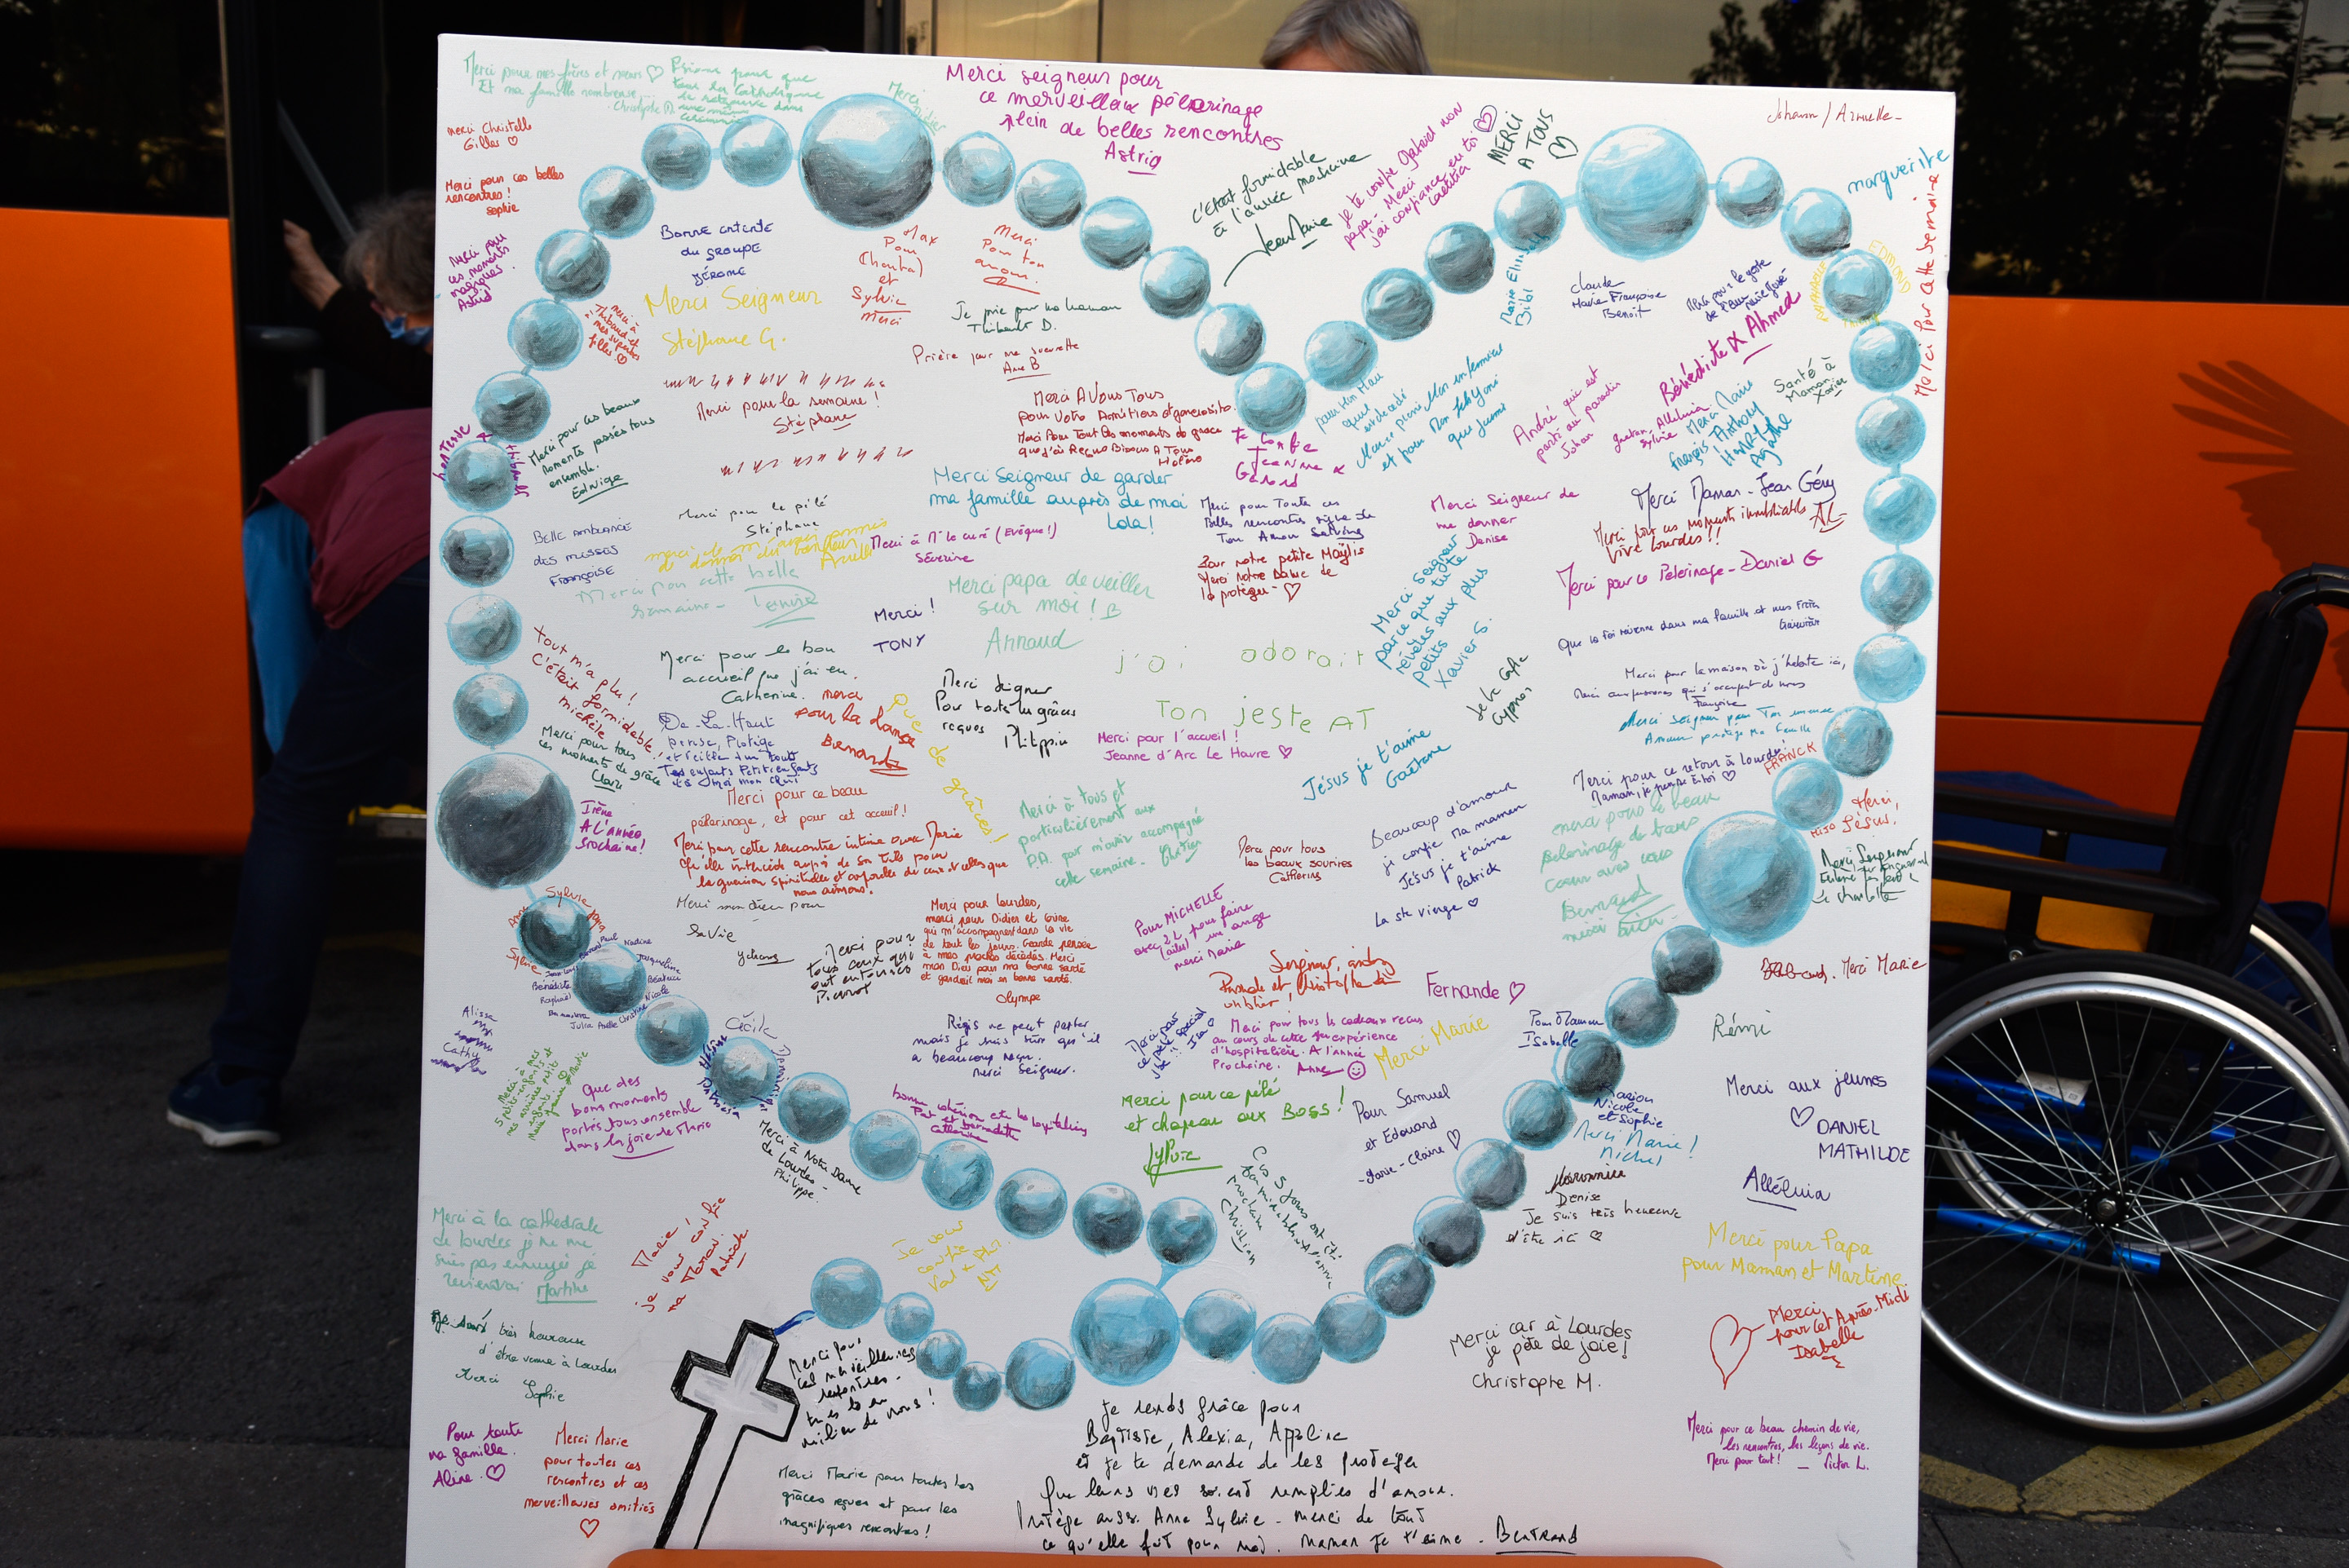 Merci pour mes frères et sœurs ♡
Et ma famille nombreuse...
Christophe D.
Prions pour que
tous les Catholiques
se retrouve dans
une même
Merci
Didier
Merci seigneur pour
ce merveilleux pèlerinage
plein de belles rencontres
Astrig
Johann / Armelle
merci Christelle
Gilles ♡
Merci pour ces belles
rencontres !
Sophie
Merci pour
ces moments
magiques.
Astrid
C'était formidable
à l'année prochaine
Jean Marie
Je te confie Gabriel mon
papa - Merci
j'ai confiance en toi ♡
Laetitia
MERCI
A TOUS
♡
marguerite
Merci pour cette semaine
EDMOND
Bonne entente
du groupe
Jérôme
Merci Seigneur
Stéphane G.
Max
Pour
Chantal
et
Sylvie
Merci
Merci
Pour ton
amour.
Je prie pour ma maman
Thibault D.
Prière pour me
Anne B
Merci à
Thibaud et
mes superbes
filles ♡
Marie Elisabeth
Bibi
Claude
Marie Françoise
Benoit
Merci pour le geste
de l'eau
Bénédicte & Ahmed
Santé à
Maman
Xavier
Merci pour la semaine !
Stéphane
Merci A Vous Tous
pour Votre Amitiées et générosité
Merci Pour Tout les moments de grace
que j'ai Reçus Bisous A Tous
Merci pour ces beaux
Moments passés tous
ensemble.
Edwige
HORTENSE
&
thibault
Te Confie
Jeanine &
Gérard
André qui est
parti au paradis
Johan
gaetan, Alleluia
Sylvie
Merci Marie
François ! Anthony
HARRY
Agathe
Merci Seigneur de garder
ma famille auprès de moi
Lola !
Merci pour le pélé
Stéphane
Belle ambiance
des messes
Françoise
merci de m'avoir permis
de donner du bonheur
Merci à Mr le curé (Evêque !)
Séverine
Merci pour Toute ces
Belles rencontres signe de
Ton Amour Sabrina
Merci Seigneur de
me donner
Denise
Merci Maman - Jean Géry
Merci pour ces moments inoubliables AL
Vive Lourdes !!
Merci pour ce Pelerinage - Daniel G
Merci pour cette belle
Semaine - Denise
Merci papa de veiller
sur moi ! B
Arnaud
Pour notre petite Maÿlis
Merci Notre Dame de
la protéger - ♡
Merci Seigneur
parce que tu te
révèles aux plus
petits
Xavier S.
Que la foi revienne dans ma famille et mes frères
Merci !
TONY
Merci pour le bon
accueil que j'ai eu.
Catherine.
j'ai adorait
Ton jeste AT
tout m'a plu !
C'était formidable !
michèle
merci
pour la danse
Bernard
Que de grâces !
Merci Seigneur
Pour toute les grâces
reçues
Philippe
Merci pour l'accueil !
Jeanne d'Arc Le Havre ♡
Jésus je t'aime
Gaëtane
Je te confie
Cyprien
Merci pour la maison où j'habite ici,
Merci aux personnes qui s'occupent de nous
Françoise
Merci Seigneur pour Ton immense
Amour protège Ma Famille
FRANCK
Merci pour tous
ces moments de grâce
Clair
De Là-Haut
pense, Protège
et veille sur tout
Tes enfants Petits enfants
Et Moi mon chéri
Merci pour ce retour à Lourdes !
Maman, je pense à toi ♡
Merci,
Jésus.
Irène
A l'année
prochaine !
Merci pour ce beau
pélerinage, et pour cet acceuil !
Merci pour cette rencontre intime avec Marie
Qu'elle intercède auprès de son fils pour
la guérison spirituelle et corporelle de ceux et celles que
nous aimons !
Merci à tous et
particulièrement aux
P.A. par m'avoir accompagné
cette semaine. Christian
Merci pour tous
les beaux sourires
Catherine
Beaucoup d'amour
je confie ma maman
Jésus je t'aime
Patrick
La ste vierge ♡
merci pour ce beau
pelerinage de tous
cœur avec vous
Bernard
merci
Merci mon Dieu pour
la Vie
Merci pour
tous ceux qui
ont entourés
Pierrot
Merci pour Lourdes,
merci pour Didier et Corine
qui m'accompagnent dans la vie
de tout les jours. Grande pensée
à mes proches décédés. Merci
mon Dieu pour ma bonne santé
et gardait moi en bonne santé.
Olympe
Pour MICHELLE
avec 2 L pour faire
(ailes) un ange
merci Maria
Fernande ♡
Merci Marie
Rémi
Sylvie
Anne
Sylvie
Paul
Nadine
Jacqueline
Béatrice
Nicole
Christine
Bénédicte
Raphaël
Julia
Alissa
Cathy
Cécile
Dominique
Hélène
Patricia
Régis ne peut parler
mais je suis sûr qu'il
a beaucoup reçu.
Merci Seigneur.
Merci pour
ce pélé spécial
Merci pour tous les cadeaux reçus
au cours de cette 1ère expérience
d'hospitalière. A l'année
Prochaine. Anne ☺
Pour Maman
Isabelle
Merci à mes
petits-enfants et
mes arrières petits
enfants
que des
bons moments
portés tous ensemble
dans la joie de Marie
bonne cohésion entre les hospitaliers
Pat et Bernadette
Catherine
Merci pour ce pélé
et chapeau aux BOSS !
Sylvie
Pour Samuel
et Edouard
- Marie-Claire ♡
Marion
Nicole
et Sophie
Merci Marie !
Michel
Merci aux jeunes
♡ DANIEL
MATHILDE
Alléluia
Merci à Notre Dame
de Lourdes -
Philippe.
Ces 5 jours ont été
Christian
Denise
Je suis très heureuse
d'être ici ♡
Merci à la cathédrale
de lourdes je ne me
suis pas ennuyé je
reviendrai Martine
Marie !
je vous confie
ma Maman.
Patrick
Je vous
confie
Val
Merci pour Papa
pour Maman et Martine
très heureuse
d'être venue à Lourdes
Merci Sophie
Merci pour
ces merveilleuses
rencontres -
tu es là au
milieu de nous !
Merci car à Lourdes
je pète de joie !
Christophe M.
Merci
pour cet Après-Midi
Isabelle
Pour toute
ma famille.
Aline. ♡
Merci Marie
pour toutes ces
rencontres et ces
merveilleuses amitiés
♡
Merci Marie pour toutes les
grâces reçues et pour les
magnifiques rencontres !
Je rends grâce pour
Baptiste, Alexia, Appoline
et je te demande de les protéger
Que leurs vies soient remplies d'amour.
Protège aussi Anne Sylvie - merci de tout
ce qu'elle fait pour moi. Maman je t'aime - Bertrand
Merci pour ce beau chemin de vie,
les rencontres, les leçons de vie.
Merci pour tout ! _ Victor L.